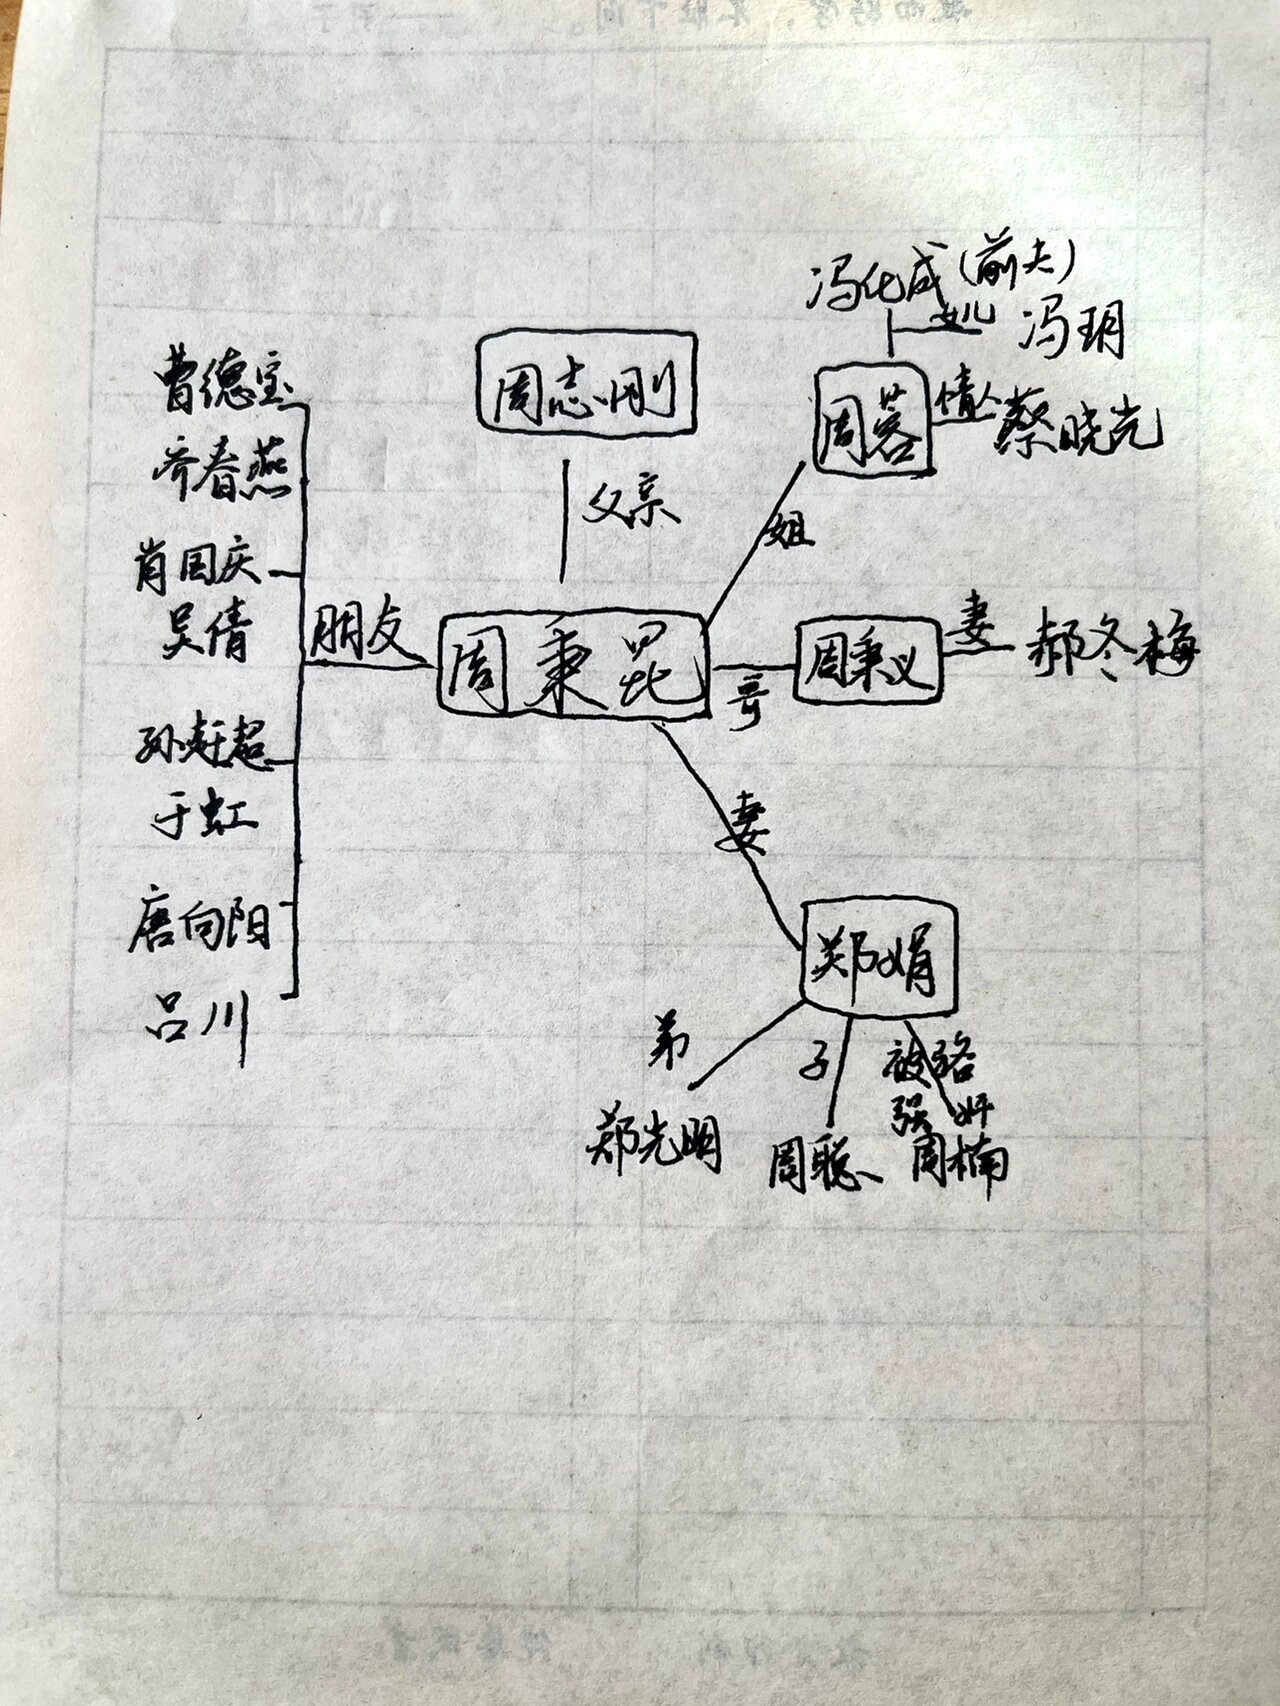 冯化成(前夫)
女儿 冯玥
周志刚
周蓉 情人 蔡晓光
父亲
姐
曹德宝
齐春燕
肖国庆
吴倩
孙赶超
于虹
唐向阳
吕川
朋友
周秉昆
哥
周秉义
妻
郝冬梅
妻
郑娟
弟
郑光明
子
周聪
被骆
强奸
周楠